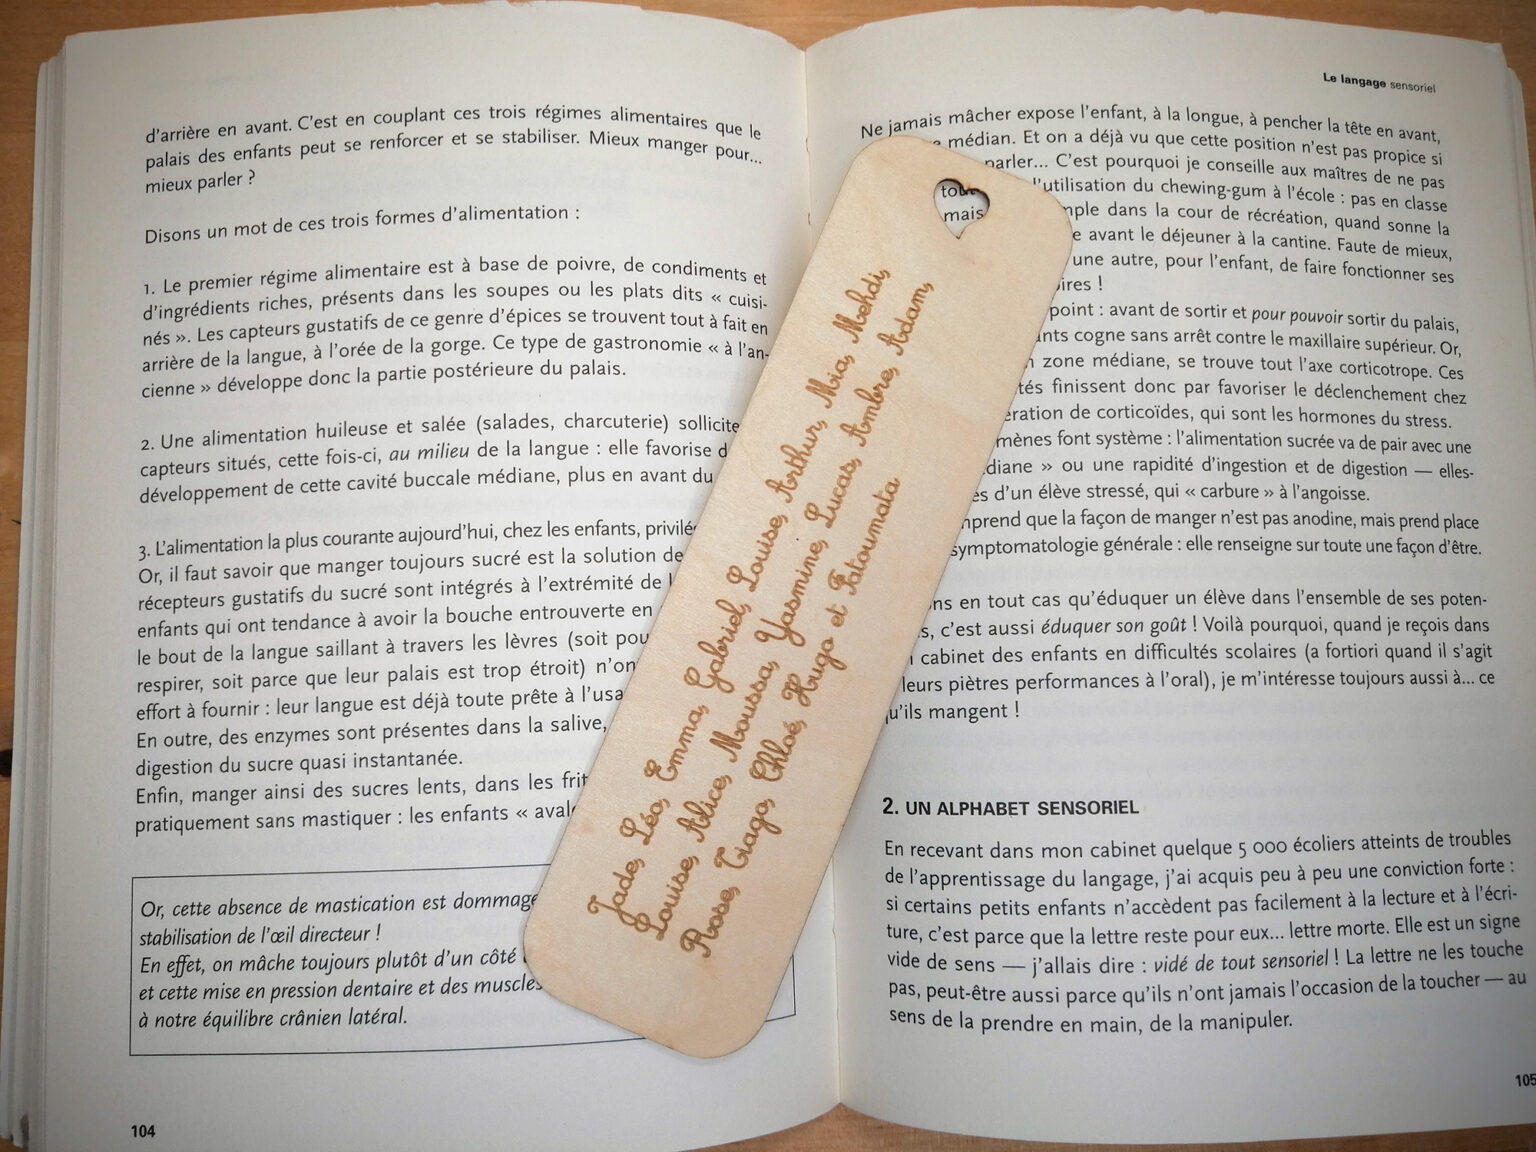 d'arrière en avant. C'est en couplant ces trois régimes alimentaires que le
palais des enfants peut se renforcer et se stabiliser. Mieux manger pour...
mieux parler ?
Disons un mot de ces trois formes d'alimentation :
1. Le premier régime alimentaire est à base de poivre, de condiments et
d'ingrédients riches, présents dans les soupes ou les plats dits « cuisi-
nés ». Les capteurs gustatifs de ce genre d'épices se trouvent tout à fait en
arrière de la langue, à l'orée de la gorge. Ce type de gastronomie « à l'an-
cienne » développe donc la partie postérieure du palais.
2. Une alimentation huileuse et salée (salades, charcuterie) sollicite
capteurs situés, cette fois-ci, au milieu de la langue : elle favorise
développement de cette cavité buccale médiane, plus en avant du
3. L'alimentation la plus courante aujourd'hui, chez les enfants,
Or, il faut savoir que manger toujours sucré est la solution de
récepteurs gustatifs du sucré sont intégrés à l'extrémité de
enfants qui ont tendance à avoir la bouche entrouverte en
le bout de la langue saillant à travers les lèvres (soit
respirer, soit parce que leur palais est trop étroit)
effort à fournir : leur langue est déjà toute prête à
En outre, des enzymes sont présentes dans la salive,
digestion du sucre quasi instantanée.
Enfin, manger ainsi des sucres lents, dans les
pratiquement sans mastiquer : les enfants «
Or, cette absence de mastication est
stabilisation de l'œil directeur !
En effet, on mâche toujours plutôt d'un côté
et cette mise en pression dentaire et des muscles
à notre équilibre crânien latéral.
104
Jade, Léo, Emma, Gabriel, Louise, Arthur, Mia, Mehdi,
Louise, Alice, Moussa, Yasmine, Lucas, Ambre, Adam,
Rose, Tiago, Chloé, Hugo et Fatoumata
Le langage sensoriel
Ne jamais mâcher expose l'enfant, à la longue, à pencher la tête en avant,
médian. Et on a déjà vu que cette position n'est pas propice si
parler... C'est pourquoi je conseille aux maîtres de ne pas
l'utilisation du chewing-gum à l'école : pas en classe
mais dans la cour de récréation, quand sonne la
avant le déjeuner à la cantine. Faute de mieux,
une autre, pour l'enfant, de faire fonctionner ses
!
point : avant de sortir et pour pouvoir sortir du palais,
cogne sans arrêt contre le maxillaire supérieur. Or,
zone médiane, se trouve tout l'axe corticotrope. Ces
finissent donc par favoriser le déclenchement chez
de corticoïdes, qui sont les hormones du stress.
font système : l'alimentation sucrée va de pair avec une
» ou une rapidité d'ingestion et de digestion — elles-
d'un élève stressé, qui « carbure » à l'angoisse.
que la façon de manger n'est pas anodine, mais prend place
symptomatologie générale : elle renseigne sur toute une façon d'être.
en tout cas qu'éduquer un élève dans l'ensemble de ses poten-
c'est aussi éduquer son goût ! Voilà pourquoi, quand je reçois dans
cabinet des enfants en difficultés scolaires (a fortiori quand il s'agit
leurs piètres performances à l'oral), je m'intéresse toujours aussi à... ce
qu'ils mangent !
2. UN ALPHABET SENSORIEL
En recevant dans mon cabinet quelque 5 000 écoliers atteints de troubles
de l'apprentissage du langage, j'ai acquis peu à peu une conviction forte :
si certains petits enfants n'accèdent pas facilement à la lecture et à l'écri-
ture, c'est parce que la lettre reste pour eux... lettre morte. Elle est un signe
vide de sens — j'allais dire : vidé de tout sensoriel ! La lettre ne les touche
pas, peut-être aussi parce qu'ils n'ont jamais l'occasion de la toucher — au
sens de la prendre en main, de la manipuler.
105